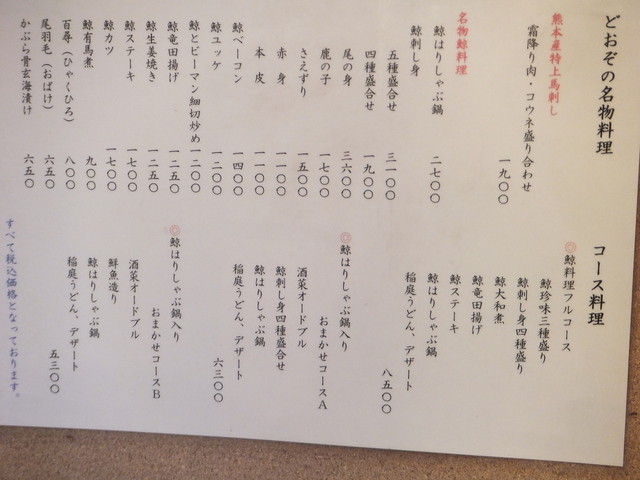 どおぞの名物料理
熊本産特上馬刺し
霜降り肉・コウネ盛り合わせ 一九〇〇
名物鯨料理
鯨はりしゃぶ鍋 二七〇〇
鯨刺し身
五種盛合せ 三一〇〇
四種盛合せ 一九〇〇
尾の身 三六〇〇
鹿の子 一七〇〇
さえずり 一五〇〇
赤身 一一〇〇
本皮 一一〇〇
鯨ベーコン 一四〇〇
鯨ユッケ 一二〇〇
鯨とピーマン細切炒め 一二〇〇
鯨竜田揚げ 一二五〇
鯨生姜焼き 一二五〇
鯨ステーキ 一七〇〇
鯨カツ 一七〇〇
鯨有馬煮 九〇〇
百尋（ひゃくひろ） 八〇〇
尾羽毛（おばけ） 六五〇
かぶら骨玄海漬け 六五〇
コース料理
◎鯨料理フルコース
鯨珍味三種盛り
鯨刺し身四種盛り
鯨大和煮
鯨竜田揚げ
鯨ステーキ
鯨はりしゃぶ鍋
稲庭うどん、デザート
八五〇〇
◎鯨はりしゃぶ鍋入り
おまかせコースA
酒菜オードブル
鯨刺し身四種盛合せ
鯨はりしゃぶ鍋
稲庭うどん、デザート
六三〇〇
◎鯨はりしゃぶ鍋入り
おまかせコースB
酒菜オードブル
鮮魚造り
鯨はりしゃぶ鍋
稲庭うどん、デザート
五三〇〇
すべて税込価格となっております。